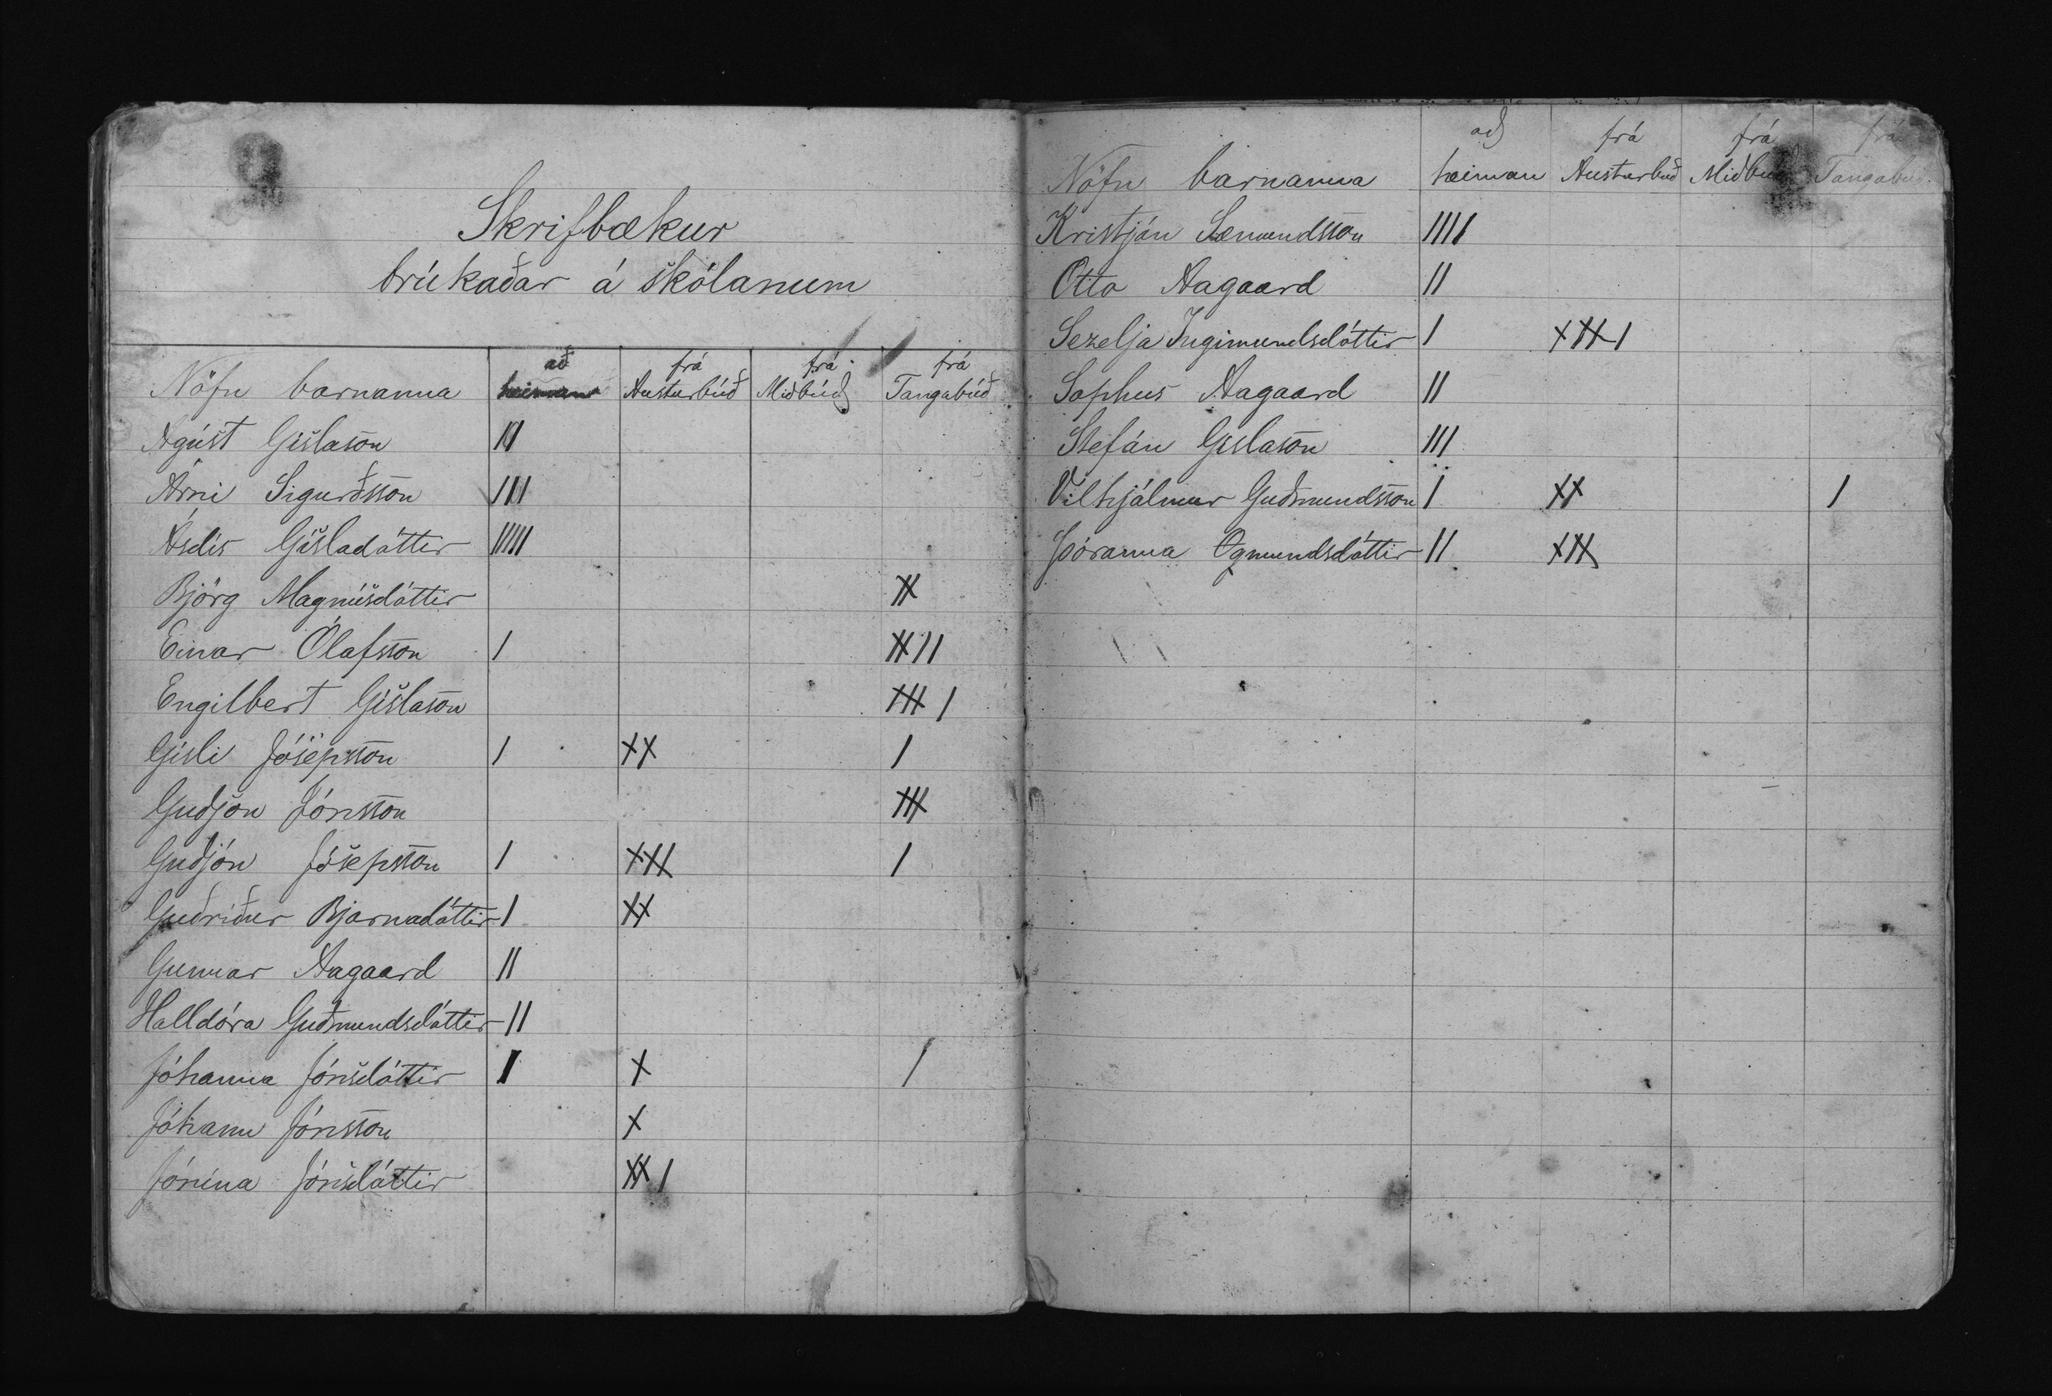 Skrifbækur
brúkaðar á skólanum
Nöfn barnanna | að heiman | frá Austurbúð | frá Miðbúð | frá Tangabúð
Ágúst Gíslason | III
Árni Sigurðsson | III
Ásdís Gísladóttir | IIIII
Björg Magnúsdóttir | | | | XX
Einar Ólafsson | I | | | XXII
Engilbert Gíslason | | | | XXX I
Gísli Jósepsson | I | XX | | I
Guðjón Jónsson | | | | XXX
Guðjón Jósepsson | I | XXX | | I
Guðríður Bjarnadóttir | I | XX
Gunnar Aagaard | II
Halldóra Guðmundsdóttir | II
Jóhanna Jónsdóttir | I | X | | I
Jóhann Jónsson | | X
Jónína Jónsdóttir | | XXX I
Nöfn barnanna | að heiman | frá Austurbúð | frá Miðbúð | frá Tangabúð
Kristján Sæmundsson | IIII
Otto Aagaard | II
Sezelja Ingimundsdóttir | I | XXX I
Sophus Aagaard | II
Stefán Gíslason | III
Vilhjálmur Guðmundsson | I | XX | | I
Þóranna Ögmundsdóttir | II | XXX